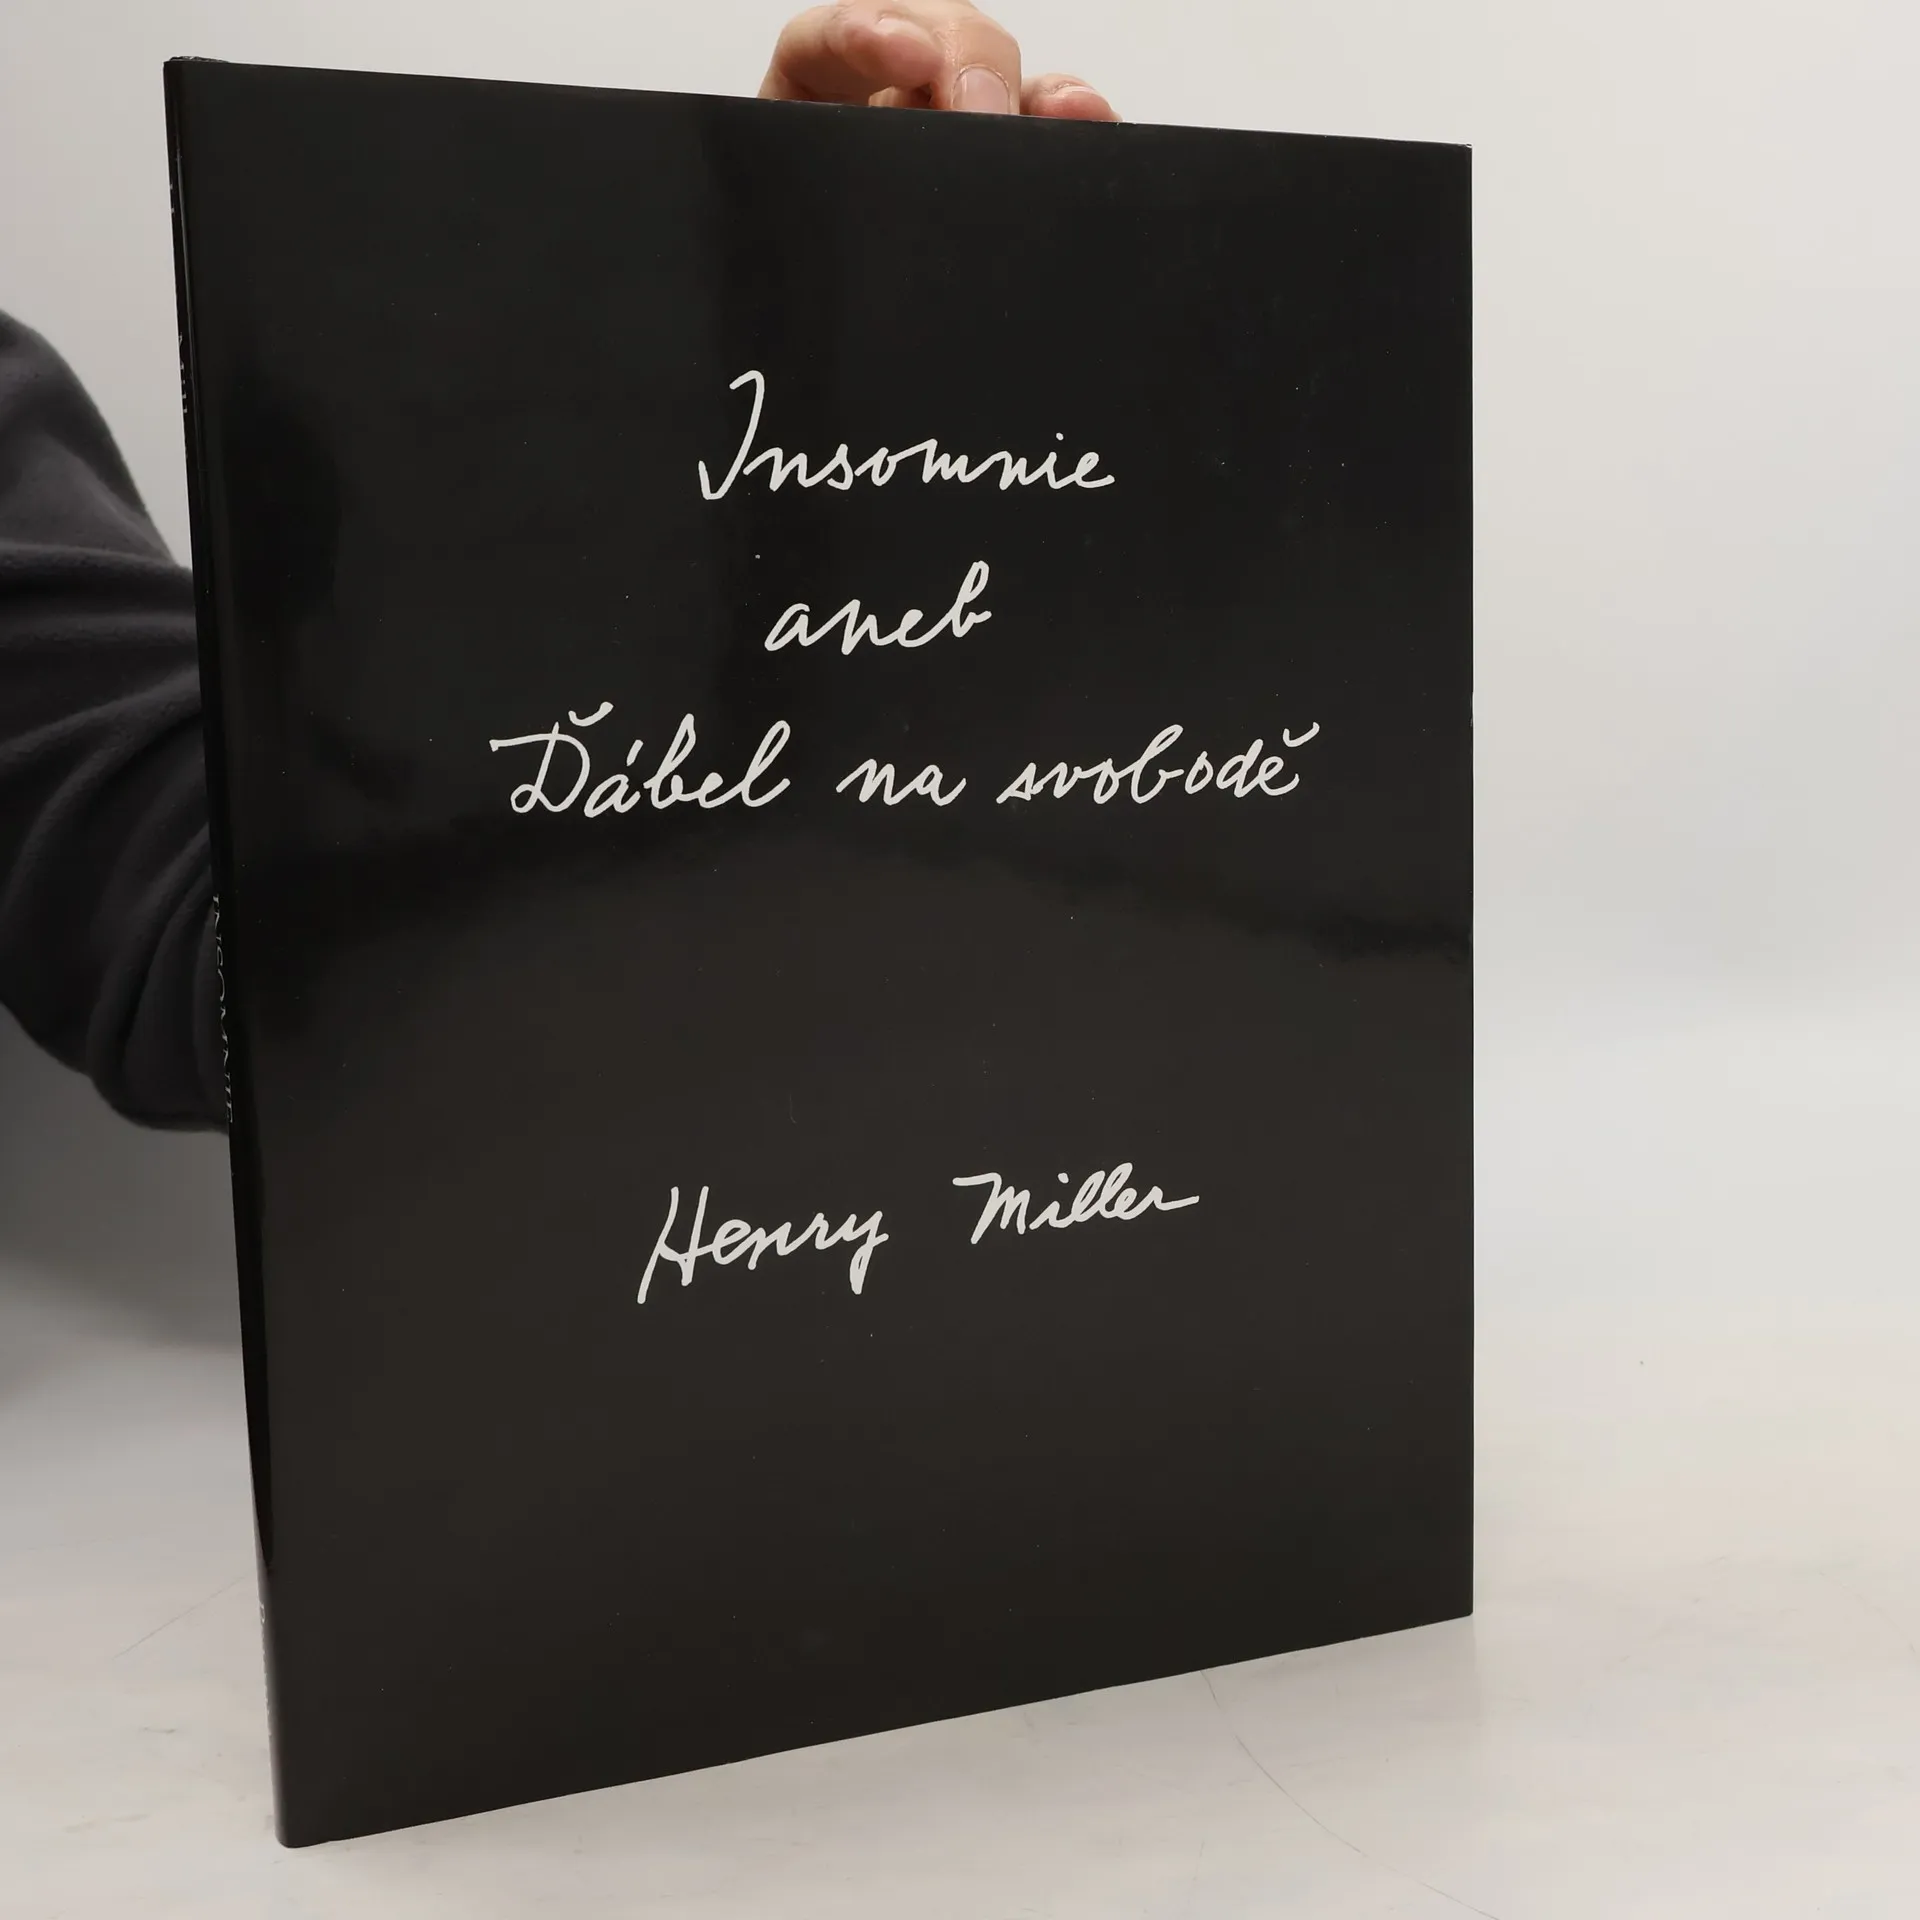 Insomnie
aneb
Ďábel na svobodě
Henry Miller
INSOMNIE